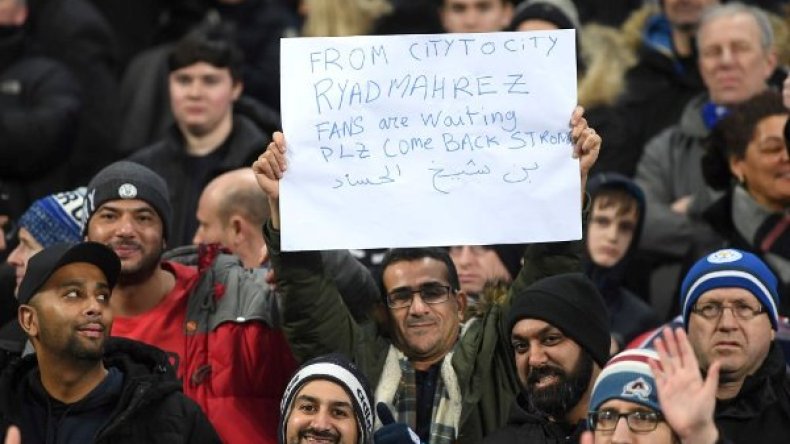 FROM CITY TO CITY
RYAD MAHREZ
FANS are waiting
PLZ COME BACK STRONG
بن شيخ الحساد